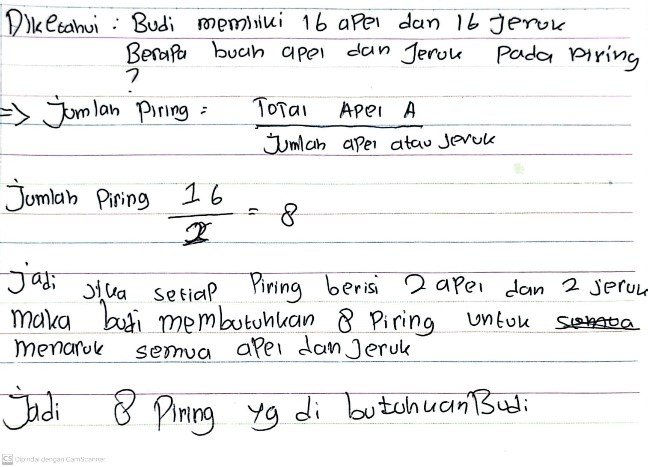 Diketahui : Budi memiliki 16 apel dan 16 Jeruk
Berapa buah apel dan Jeruk pada piring
?
=> Jumlah Piring = Total Apel A
Jumlah apel atau Jeruk
Jumlah Piring 16
2 = 8
Jadi jika setiap Piring berisi 2 apel dan 2 jeruk
maka budi membutuhkan 8 Piring untuk semua
menaruk semua apel dan Jeruk
Jadi 8 Piring yg di butuhkan Budi
CS Dipindai dengan CamScanner